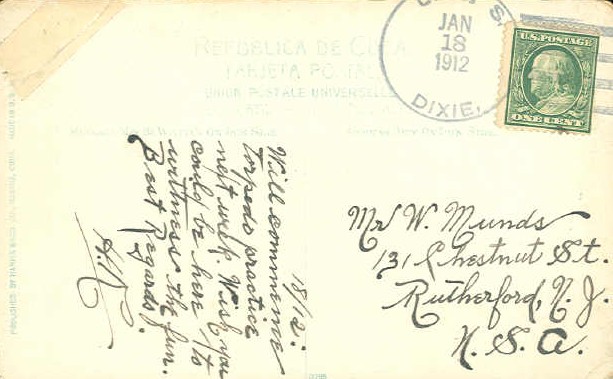 REPUBLICA DE CUBA
TARJETA POSTAL
UNION POSTALE UNIVERSELLE
JAN
18
1912
DIXIE,
U.S. POSTAGE
ONE CENT
18/12.
Will commence
torpedo practice
next week. Wish you
could be here to
witness the fun.
Best Regards
Mr W. Munds
131 Chestnut St.
Rutherford, N. J.
U. S. A.